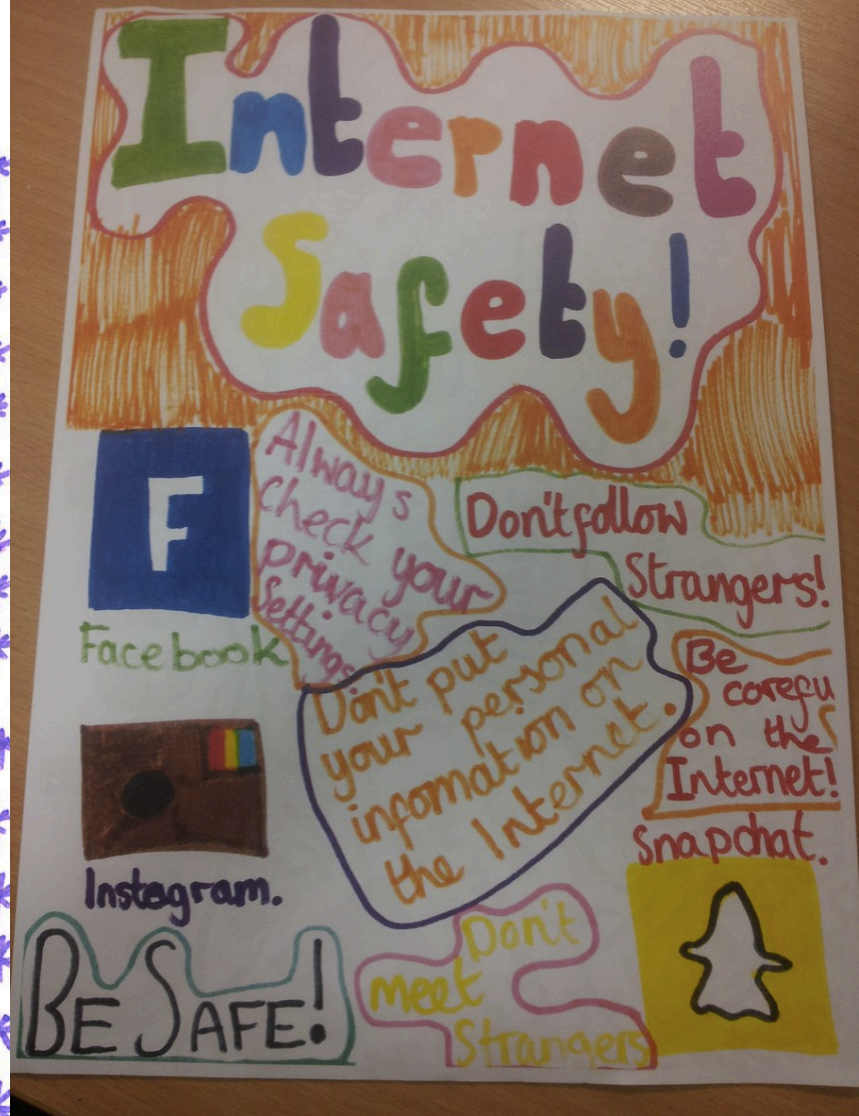 Internet
Safety!
F
Facebook
Always
check your
privacy
Settings.
Don't follow
Strangers!
Don't put
your personal
infomation on
the Internet.
Be
carefu
on the
Internet!
Instagram.
Snapchat.
BE SAFE!
Don't
meet
Strangers